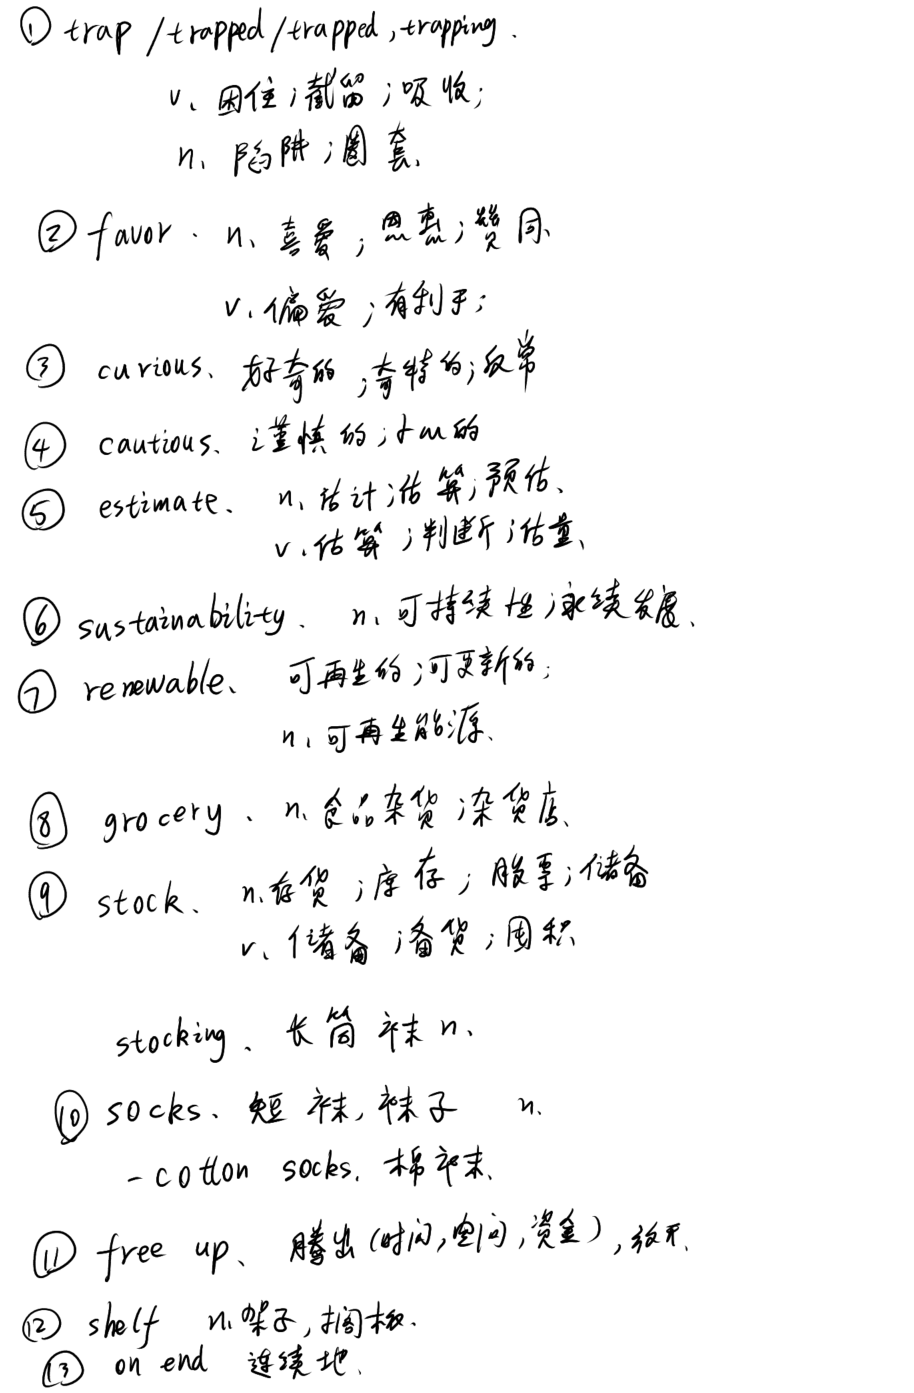 ① trap /trapped/trapped,trapping.
v、困住;截留;吸收;
n、陷阱;圈套、
② favor. n、喜爱;恩惠;赞同、
v、偏爱;有利于;
③ curious、好奇的;奇特的;反常
④ cautious、谨慎的;小心的
⑤ estimate、n、估计;估算;预估、
v、估算;判断;估量、
⑥ sustainability. n、可持续性;永续发展、
⑦ renewable、可再生的;可更新的;
n、可再生能源、
⑧ grocery、n、食品杂货;杂货店、
⑨ stock、n、存货;库存;股票;储备
v、储备;备货;囤积
stocking、长筒袜 n、
⑩ socks、短袜,袜子 n.
-cotton socks. 棉袜、
⑪ free up、腾出(时间,空间,资金),放开、
⑫ shelf n、架子,搁板.
⑬ on end 连续地、